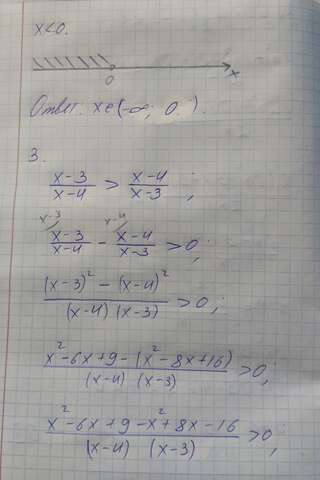 x<0.
0 x
Ответ: x∈(-∞; 0).
3.
(x-3)/(x-4) > (x-4)/(x-3) ;
x-3 x-4
(x-3)/(x-4) - (x-4)/(x-3) >0;
((x-3)² - (x-4)²)/((x-4)(x-3)) >0;
(x²-6x+9-(x²-8x+16))/((x-4)(x-3)) >0;
(x²-6x+9-x²+8x-16)/((x-4)(x-3)) >0;